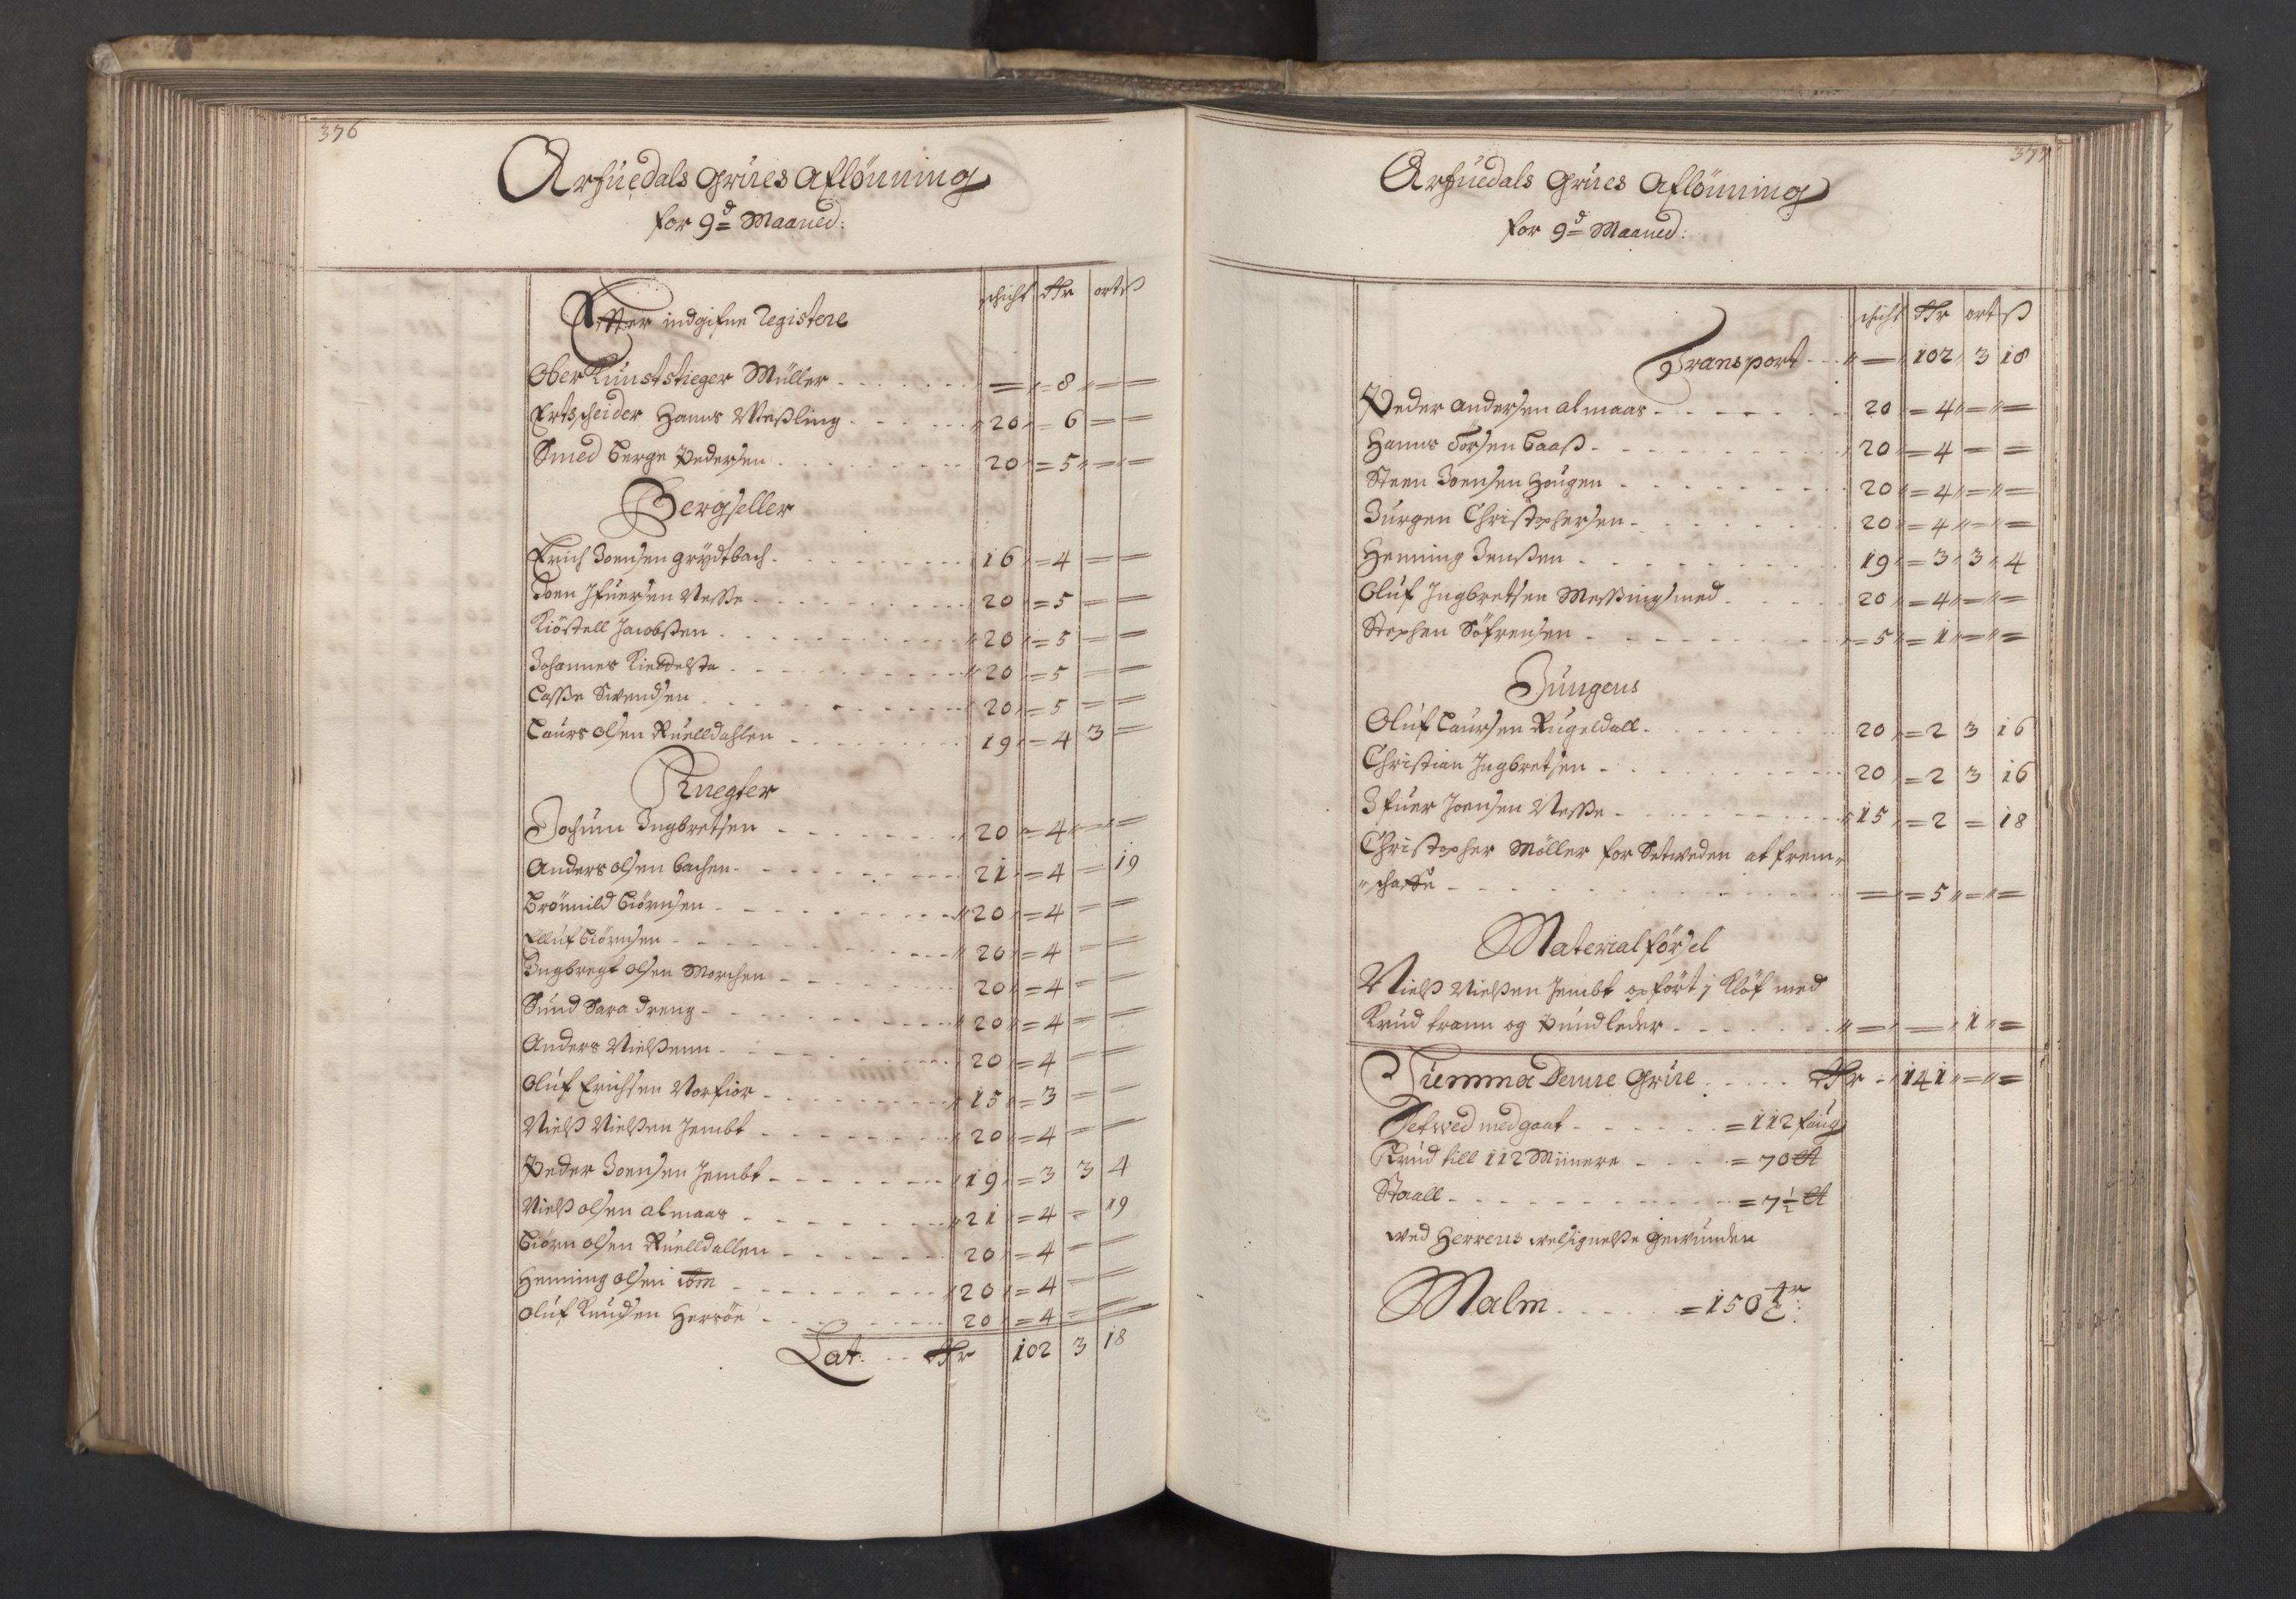 376
Arfuedals Grues Aflönning
for 9d Maaned:
schicht Rdr ort ß
Efter indgifne Registere
Ober Kunststieger Müller - - - = 8 = =
Ertscheider Hanns Meßling - - 20 = 6 = =
Smed Berge Pedersen - - 20 = 5 = =
Bergseller
Erich Joensen Grydtbach - - 16 = 4 = =
Joen Ifuersen Nesse - - 20 = 5 = =
Kiöstell Jacobsen - - 20 = 5 = =
Johannes - - 20 = 5 = =
Lasse Swendsen - - 20 = 5 = =
Laurs Olsen Ruelldahlen - - 19 = 4 3 =
Knegter
Jochum Ingbretsen - - 20 = 4 = =
Anders Olsen Bachen - - 21 = 4 = 19
Brönnild Biörnsen - - 20 = 4 = =
Elluf Biörnsen - - 20 = 4 = =
Ingbregt Olsen Morchen - - 20 = 4 = =
Sund Sara dreng - - 20 = 4 = =
Anders Nielßenn - - 20 = 4 = =
Oluf Erichsen Norfior - - 15 = 3 = =
Nielß Nielßen Jembt - - 20 = 4 = =
Peder Joensen Jembt - - 19 = 3 3 4
Nielß Olsen Almaas - - 21 = 4 = 19
Biörn Olsen Ruelldallen - - 20 = 4 = =
Henning Olsen ibm - - 20 = 4 = =
Oluf Knudsen Hersöe - - 20 = 4 = =
Lat: - - Rdr 102 3 18
377
Arfuedals Grues Aflönning
for 9d Maaned:
schicht Rdr ort ß
Transport - - = 102 3 18
Peder Andersen Almaas - - 20 = 4 = =
Hanns Torsen Baaß - - 20 = 4 = =
Steen Joensen Hougen - - 20 = 4 = =
Jürgen Christophersen - - 20 = 4 = =
Henning Jenßen - - 19 = 3 3 4
Oluf Ingbretsen Messingsmed - - 20 = 4 = =
Stephen Söfrensen - - = 5 = 1 = =
Jungens
Oluf Laursen Rugeldall - - 20 = 2 3 16
Christian Ingbretsen - - 20 = 2 3 16
Ifuer Joensen Nesse - - 15 = 2 = 18
Christopher Möller for Setweden at frem-
schaffe - - = = 5 = =
Materialförsel
Nielß Nielßen Jembt opfört i Klöf med
Krud trann og Pundleder - - = = 1 =
Summa Denne Grue - - Rdr 141 = =
Setwed medgaat - - = 112 faug
Krud till 112 Minere - - = 70 ℔
Staall - - = 7½ ℔
wed Herrens welsignelse Gewunden
Malm - - = 150 tr: